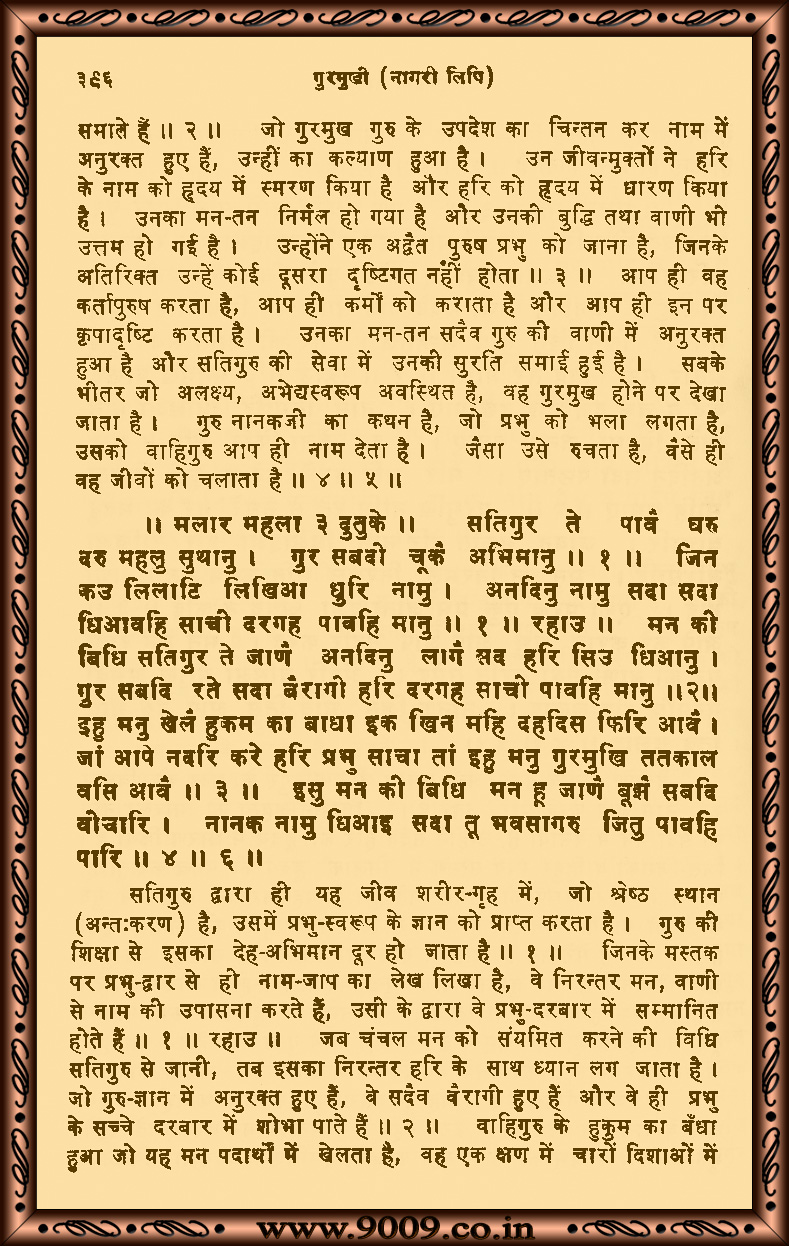 ३९६ गुरमुखी (नागरी लिपि)
समाले हैं ॥ २ ॥ जो गुरमुख गुरु के उपदेश का चिन्तन कर नाम में
अनुरक्त हुए हैं, उन्हीं का कल्याण हुआ है । उन जीवन्मुक्तों ने हरि
के नाम को हृदय में स्मरण किया है और हरि को हृदय में धारण किया
है । उनका मन-तन निर्मल हो गया है और उनकी बुद्धि तथा वाणी भी
उत्तम हो गई है । उन्होंने एक अद्वैत पुरुष प्रभु को जाना है, जिनके
अतिरिक्त उन्हें कोई दूसरा दृष्टिगत नहीं होता ॥ ३ ॥ आप ही वह
कर्तापुरुष करता है, आप ही कर्मों को कराता है और आप ही इन पर
कृपादृष्टि करता है । उनका मन-तन सदैव गुरु की वाणी में अनुरक्त
हुआ है और सतिगुरु की सेवा में उनकी सुरति समाई हुई है । सबके
भीतर जो अलक्ष्य, अभेद्यस्वरूप अवस्थित है, वह गुरमुख होने पर देखा
जाता है । गुरु नानकजी का कथन है, जो प्रभु को भला लगता है,
उसको वाहिगुरु आप ही नाम देता है । जैसा उसे रुचता है, वैसे ही
वह जीवों को चलाता है ॥ ४ ॥ ५ ॥
॥ मलार महला ३ दुतुके ॥ सतिगुर ते पावै घरु
दरु महलु सुथानु । गुर सबदी चूकै अभिमानु ॥ १ ॥ जिन
कउ लिलाटि लिखिआ धुरि नामु । अनदिनु नामु सदा सदा
धिआवहि साची दरगह पावहि मानु ॥ १ ॥ रहाउ ॥ मन की
बिधि सतिगुर ते जाणै अनदिनु लागै सद हरि सिउ धिआनु ।
गुर सबदि रते सदा बैरागी हरि दरगह साची पावहि मानु ॥२॥
इहु मनु खेलै हुकम का बाधा इक खिन महि दहदिस फिरि आवै ।
जां आपे नदरि करे हरि प्रभु साचा तां इहु मनु गुरमुखि ततकाल
वसि आवै ॥ ३ ॥ इसु मन की बिधि मन हू जाणै बूझै सबदि
वीचारि । नानक नामु धिआइ सदा तू भवसागरु जितु पावहि
पारि ॥ ४ ॥ ६ ॥
सतिगुरु द्वारा ही यह जीव शरीर-गृह में, जो श्रेष्ठ स्थान
(अन्त:करण) है, उसमें प्रभु-स्वरूप के ज्ञान को प्राप्त करता है । गुरु की
शिक्षा से इसका देह-अभिमान दूर हो जाता है ॥ १ ॥ जिनके मस्तक
पर प्रभु-द्वार से ही नाम-जाप का लेख लिखा है, वे निरन्तर मन, वाणी
से नाम की उपासना करते हैं, उसी के द्वारा वे प्रभु-दरबार में सम्मानित
होते हैं ॥ १ ॥ रहाउ ॥ जब चंचल मन को संयमित करने की विधि
सतिगुरु से जानी, तब इसका निरन्तर हरि के साथ ध्यान लग जाता है ।
जो गुरु-ज्ञान में अनुरक्त हुए हैं, वे सदैव वैरागी हुए हैं और वे ही प्रभु
के सच्चे दरबार में शोभा पाते हैं ॥ २ ॥ वाहिगुरु के हुकुम का बँधा
हुआ जो यह मन पदार्थों में खेलता है, वह एक क्षण में चारों दिशाओं में
www.9009.co.in